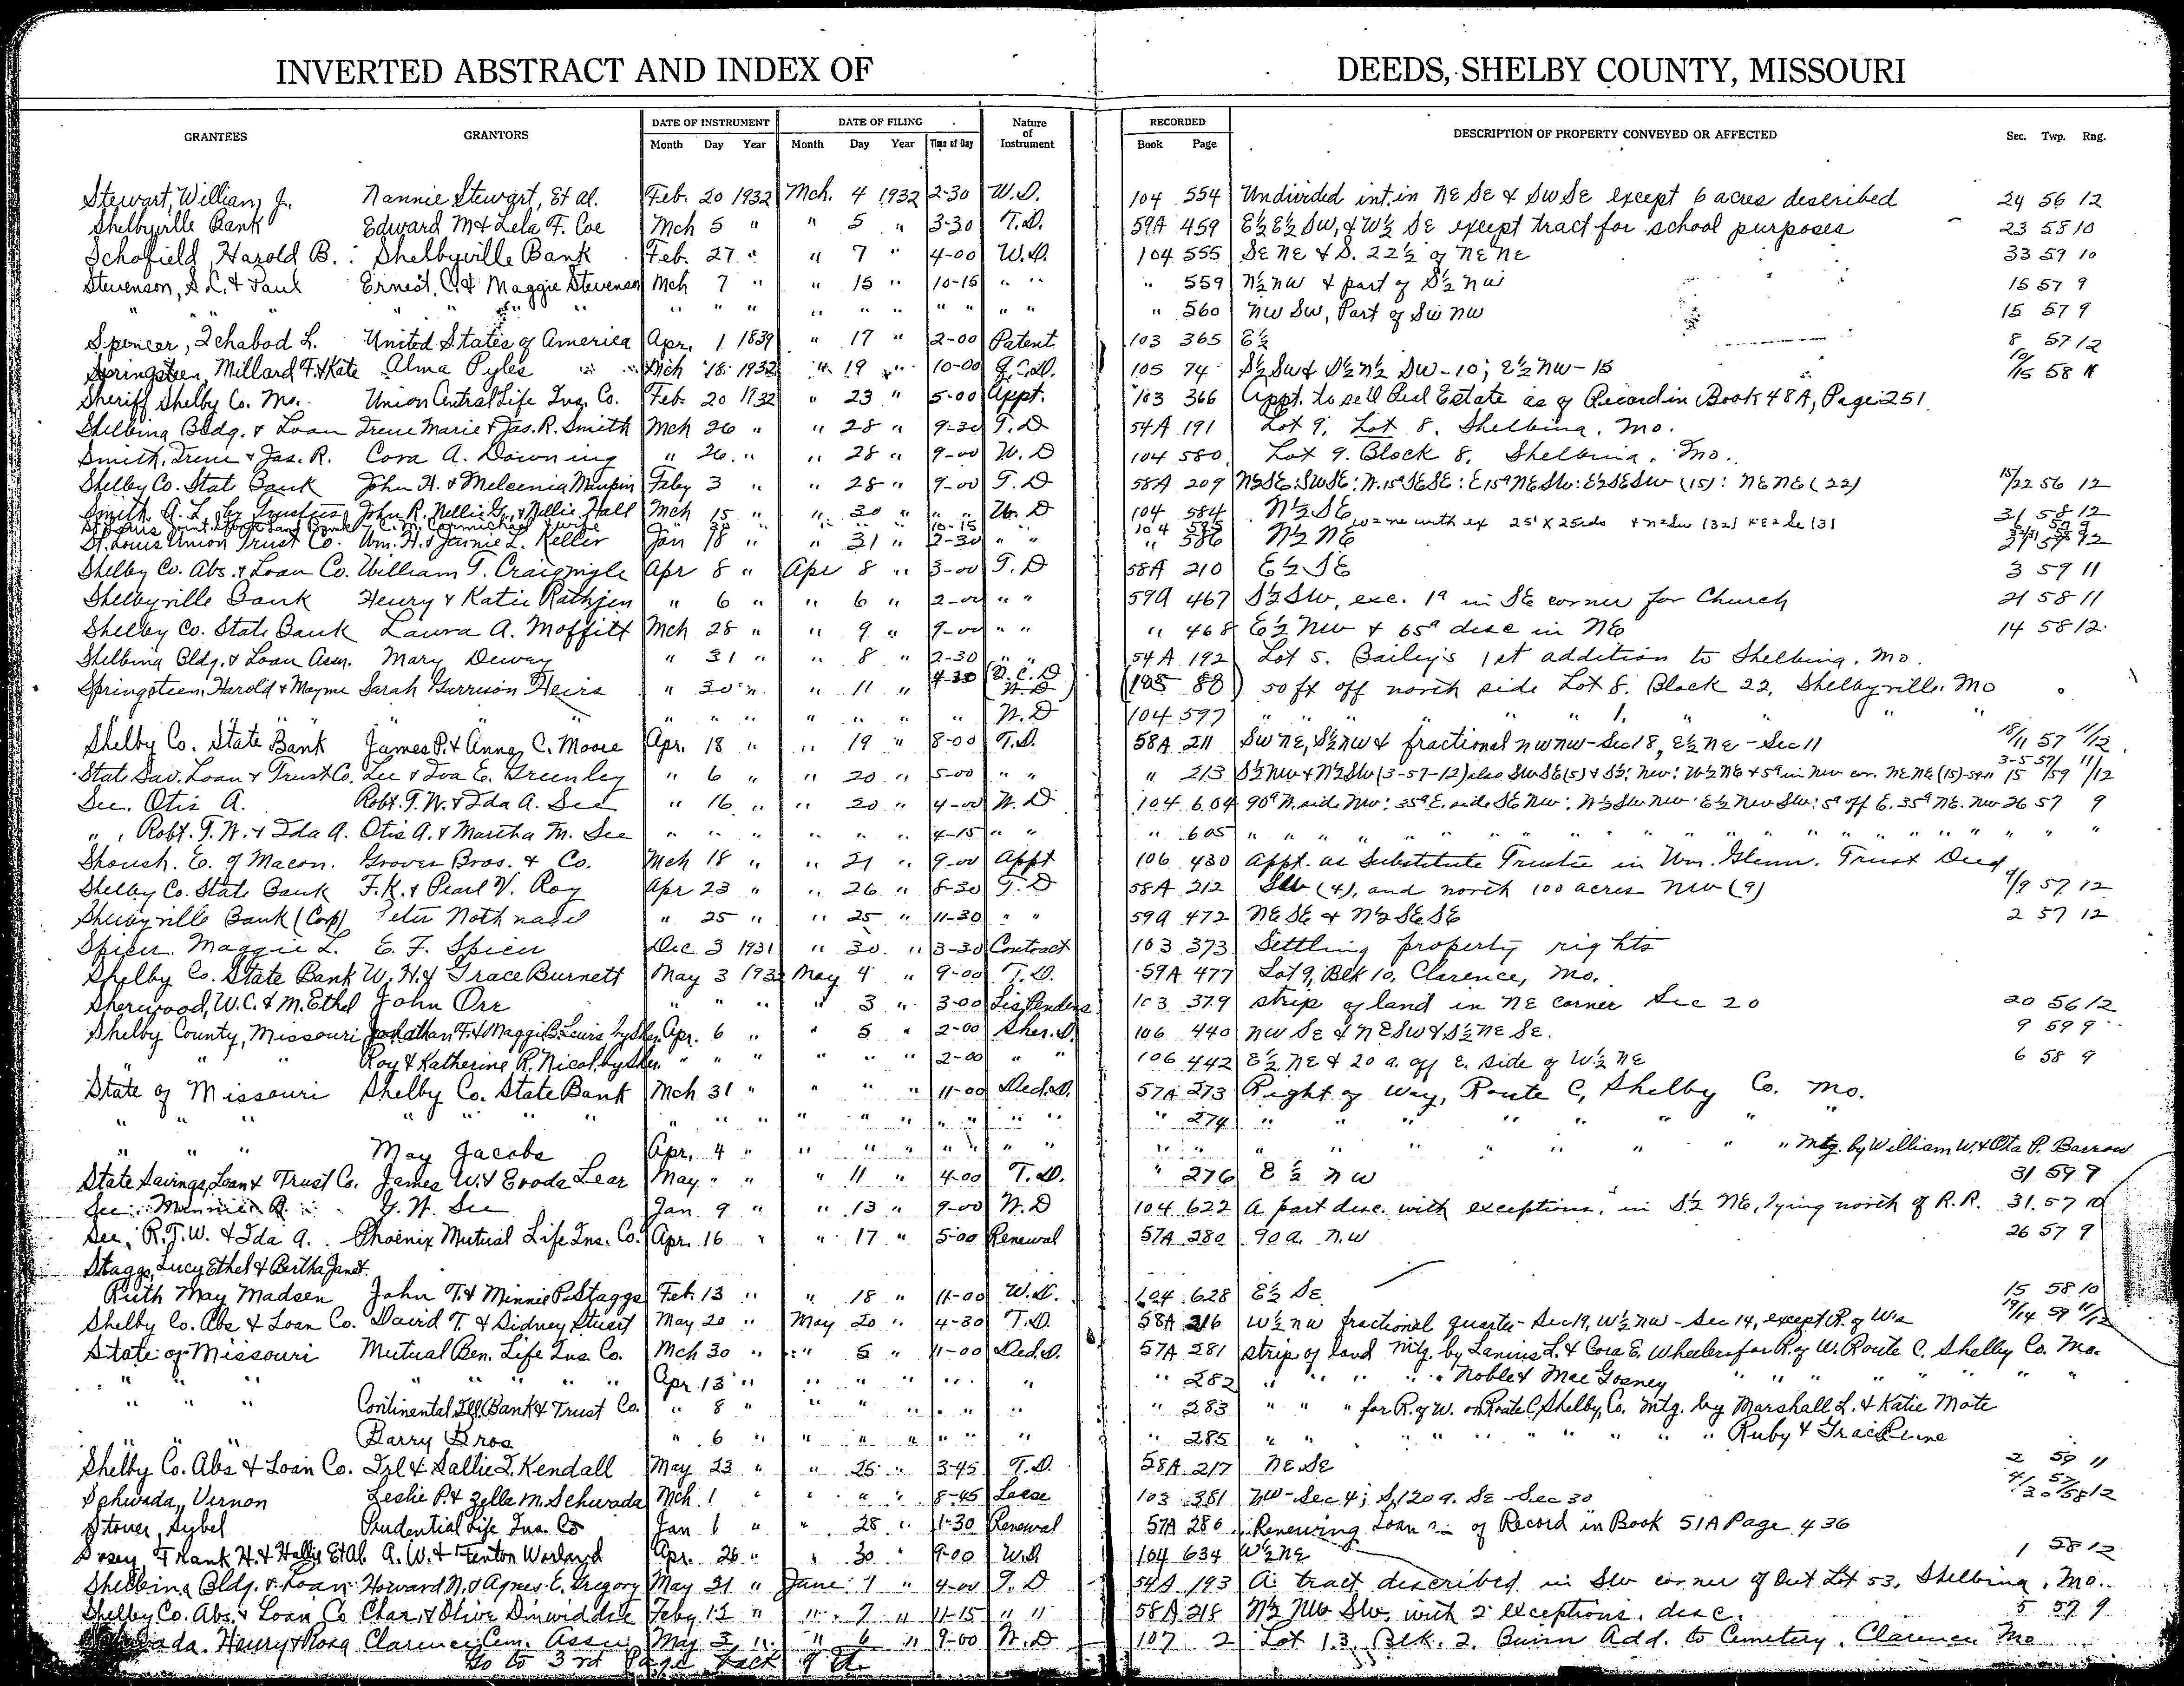 INVERTED ABSTRACT AND INDEX OF DEEDS, SHELBY COUNTY, MISSOURI
GRANTEES GRANTORS DATE OF INSTRUMENT DATE OF FILING Nature of Instrument RECORDED DESCRIPTION OF PROPERTY CONVEYED OR AFFECTED Sec. Twp. Rng.
Month Day Year Month Day Year Time of Day Book Page
Stewart, William J. Nannie Stewart, Et Al. Feb. 20 1932 Mch. 4 1932 2-30 W.D. 104 554 Undivided int. in NE SE & SW SE except 6 acres described 24 56 12
Shelbyville Bank Edward M & Lela F. Coe Mch 5 " " 5 " 3-30 T.D. 59A 459 E½ E½ SW, & W½ SE except tract for school purposes 23 58 10
Schofield, Harold B. Shelbyville Bank Feb. 27 " " 7 " 4-00 W.D. 104 555 SE NE & S. 22½ of NE NE 33 59 10
Stevenson, S.C. & Paul Ernest C. & Maggie Stevenson Mch 7 " " 15 " 10-15 " " " 559 N½ NW & part of S½ NW 15 57 9
" " " " " " " " " " " " " " " 560 NW SW, Part of SW NW 15 57 9
Spencer, Ichabod L. United States of America Apr. 1 1839 " 17 " 2-00 Patent 103 365 E½ 8 57 12
Springsteen, Millard F. & Kate Alma Pyles Mch 18 1932 " 19 " 10-00 Q.C.D. 105 74 S½ SW & S½ N½ SW-10; E½ NW-15 10/15 58 11
Sheriff Shelby Co. Mo. Union Central Life Ins. Co. Feb. 20 1932 " 23 " 5-00 Appt. 103 366 Appt. to sell Real Estate as of Record in Book 48A, Page 251
Shelbina Bldg. & Loan Irene Marie & Jas. R. Smith Mch 26 " " 28 " 9-30 T.D 54A 191 Lot 9, Lot 8, Shelbina, Mo.
Smith, Irene & Jas. R. Cora A. Downing " 26 " " 28 " 9-00 W.D 104 580 Lot 9, Block 8, Shelbina, Mo.
Shelby Co. State Bank John H. & Melcenia Maupin Feby 3 " " 28 " 9-00 T.D 58A 209 N½SE: SWSE: N.15ª SESE: E15ª NESW: E½SESW (15): NENE (22) 15/22 56 12
Smith, A.L. by Trustees John R. Nellie G., & Nellie Hall Mch 15 " " 30 " " " W.D 104 584 N½ SE 31 58 12
St. Louis Joint Stock Land Bank C.M. Carmichael & wife 10-15 104 585 W½ NE with ex 25' X 25rds & N½ SW (32) & E½ SE (31
St. Louis Union Trust Co. Wm. H. & Jennie L. Keller Jan 18 " " 31 " 2-30 " " " 586 N½ NE
Shelby Co. Abs. & Loan Co. William T. Craigmyle Apr 8 " Apr 8 " 3-00 T.D 58A 210 E½ SE 3 59 11
Shelbyville Bank Henry & Katie Rathjen " 6 " " 6 " 2-00 " " 59A 467 S½ SW, exc. 1ª in SE corner for Church 21 58 11
Shelby Co. State Bank Laura A. Moffitt Mch 28 " " 9 " 9-00 " " " 468 E½ NW & 65ª desc in NE 14 58 12
Shelbina Bldg. & Loan Assn. Mary Dewey " 31 " " 8 " 2-30 " " 54A 192 Lot 5, Bailey's 1st addition to Shelbina, Mo.
Springsteen, Harold & Mayme Sarah Garrison Heirs " 30 " " 11 " 4-30 (Q.C.D W.D) (105 80) 50 ft off north side Lot 8, Block 22, Shelbyville, Mo
" " " " " " " " " " W.D 104 597 " " " " 1, " " "
Shelby Co. State Bank James P. & Anna C. Moore Apr. 18 " " 19 " 8-00 T.D. 58A 211 SW NE, S½ NW & fractional NW NW-Sec 18, E½ NE-Sec 11 18/11 57 11/12
State Sav. Loan & Trust Co. Lee & Iva E. Greenley " 6 " " 20 " 5-00 " " " 213 S½ NW & N½ SW (3-57-12) also SWSE (5) & S½: NW: W½ NE & 5ª in NW cor. NENE (15)-59-11 3-5 57/ 15 /59 11/12
See, Otis A. Robt. T.W. & Ida A. See " 16 " " 20 " 4-00 W.D 104 604 90ª N. side NW: 35ª E. side SE NW: N½ SW NW: E½ NW SW: 5ª off E. 35ª NE. NW 26 57 9
" , Robt. T.W. & Ida A. Otis A. & Martha M. See " " " " " " 4-15 " " " 605 " " " " " " " " " " " "
Shoush, E. of Macon. Grover Bros. & Co. Mch 18 " " 21 " 9-00 Appt 106 430 Appt. as Substitute Trustee in Wm. Glenn, Trust Deed
Shelby Co. State Bank F.K. & Pearl V. Roy Apr 23 " " 26 " 8-30 T.D 58A 212 SW (4), and north 100 acres NW (9) 4/9 57 12
Shelbyville Bank (Corp) Peter Nothnagel " 25 " " 25 " 11-30 " " 59A 472 NE SE & N½ SE SE 2 57 12
Spicer, Maggie L. E. F. Spicer Dec 3 1931 " 30 " 3-30 Contract 103 373 Settling property rights
Shelby Co. State Bank W. H. & Grace Burnett May 3 1932 May 4 " 9-00 T.D. 59A 477 Lot 9, Blk 10, Clarence, Mo.
Sherwood, W.C. & M. Ethel John Orr " " " " 3 " 3-00 Lis Pendens 103 379 strip of land in NE corner Sec 20 20 56 12
Shelby County, Missouri Jonathan F. & Maggie B. Lewis by Sher. Apr. 6 " " 5 " 2-00 Sher. D. 106 440 NW SE & NE SW & S½ NE SE. 9 59 9
" " " Roy & Katherine R. Nicol, by Sher. " " " " " " 2-00 " " 106 442 E½ NE & 20 a. off E. side of W½ NE 6 58 9
State of Missouri Shelby Co. State Bank Mch 31 " " " " 11-00 Ded. D. 57A 273 Right of Way, Route C, Shelby Co. Mo.
" " " " " " " " " " " " " " " " " 274 " " " " " " "
" " " May Jacobs Apr. 4 " " " " " " " " " " " " " " " " Mtg. by William W. & Ota P. Barrow
State Savings, Loan & Trust Co. James W. & Evoda Lear May " " " 11 " 4-00 T.D. " 276 E½ NW 31 59 9
See, Minnie R. G. W. See Jan 9 " " 13 " 9-00 W.D 104 622 A part desc. with exceptions, in S½ NE, lying north of R.R. 31 57 10
See, R.T.W. & Ida A. Phoenix Mutual Life Ins. Co. Apr. 16 " " 17 " 5-00 Renewal 57A 280 90 a. NW 26 57 9
Staggs, Lucy Ethel & Bertha Janet
Ruth May Madsen John T. & Minnie P. Staggs Feb. 13 " " 18 " 11-00 W.D. 104 628 E½ SE 15 58 10
Shelby Co. Abs & Loan Co. David T. & Sidney Stuart May 20 " May 20 " 4-30 T.D. 58A 216 W½ NW fractional quarter-Sec 19, W½ NW-Sec 14, except R. of W's 19/14 59 11/12
State of Missouri Mutual Ben. Life Ins Co. Mch 30 " " 5 " 11-00 Ded. D. 57A 281 strip of land Mtg. by L. & Cora E. Wheeler for R. of W. Route C. Shelby Co. Mo.
" " " " " " " " Apr 13 " " " " " " " 282 " " " " " Noble & Mae Gosney " " " " " "
" " " Continental Ill. Bank & Trust Co. " 8 " " " " " " " 283 " " " for R. of W. on Route C, Shelby, Co. Mtg. by Marshall L. & Katie Mote
" " " Barry Bros " 6 " " " " " " " 285 " " " " " " " " " Ruby &
Shelby Co. Abs & Loan Co. Irl & Sallie I. Kendall May 23 " " 25 " 3-45 T.D. 58A 217 NE SE 2 59 11
Schwada, Vernon Leslie P. & Zella M. Schwada Mch 1 " " " " 8-45 Lease 103 381 NW-Sec 4; S. 120 a. SE-Sec 30 4/30 57/58 12
Stover, Sybel Prudential Life Ins. Co Jan 6 " " 28 " 1-30 Renewal 57A 286 Renewing Loan of Record in Book 51A Page 436
Sosey, Frank H. & Hallie Et Al. A. W. & Fenton Worland Apr. 26 " " 30 " 9-00 W.D 104 634 W½ NE 1 58 12
Shelbina Bldg. & Loan Howard N. & Agnes E. Gregory May 21 " June 1 " 4-00 T.D 54A 193 A tract described in SW corner of Out Lot 53, Shelbina, Mo.
Shelby Co. Abs. & Loan Co Chas. & Olive Dinwiddie Feby 15 " " 7 " 11-15 " " 58A 218 N½ NW SW, with 2 exceptions, desc. 5 57 9
Schwada, Henry & Rosa Clarence Cem. Assn May 3 " " 6 " 9-00 W.D 107 2 Lot 13, Blk. 2, Add. to Cemetery, Clarence Mo
Go to 3rd Page Back